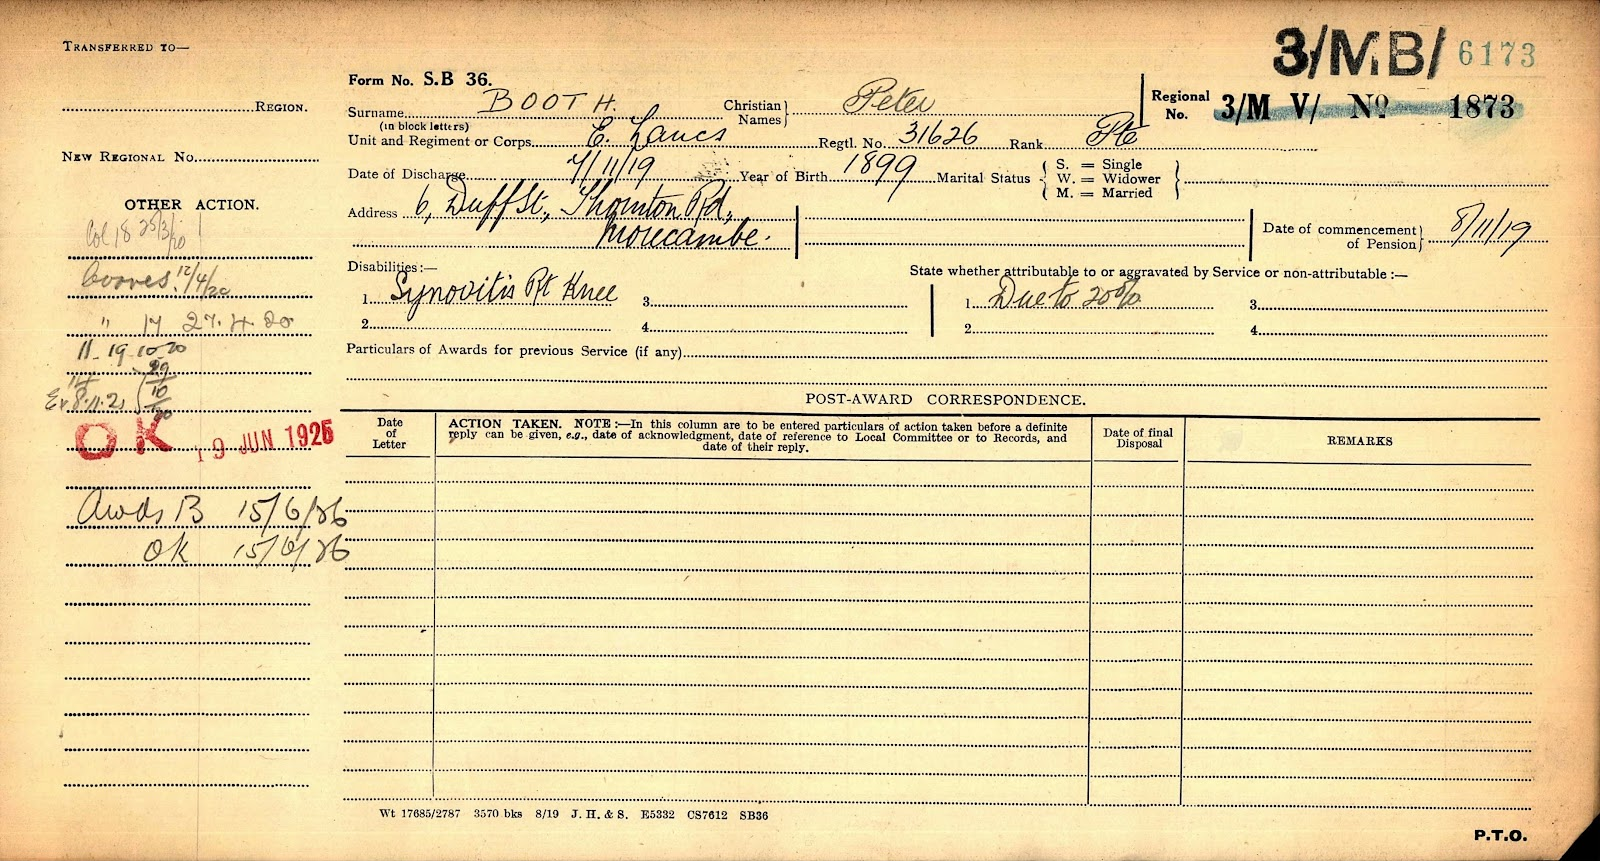 TRANSFERRED TO—
REGION.
NEW REGIONAL No.
OTHER ACTION.
Col 18 25/3/20
12/4/20
" 17 27.4.20
11 - 19.10.20
Ex 8.11.21 29/10/20
OK 19 JUN 1925
Awds B 15/6/26
OK 15/6/26
3/MB/ 6173
Form No. S.B 36.
Surname BOOTH. Christian Names} Peter
(in block letters)
Regional No. 3/M V/ No 1873
Unit and Regiment or Corps E. Lancs Regtl. No. 31626 Rank Pte
Date of Discharge 7/11/19 Year of Birth 1899 Marital Status { S. = Single
W. = Widower
M. = Married }
Address 6, Duff St., Thornton Rd,
Morecambe.
Date of commencement of Pension} 8/11/19
Disabilities:— State whether attributable to or aggravated by Service or non-attributable:—
1. Synovitis Rt Knee 3. 1. Due to 20% 3.
2. 4. 2. 4.
Particulars of Awards for previous Service (if any)
POST-AWARD CORRESPONDENCE.
Date of Letter
ACTION TAKEN. NOTE:—In this column are to be entered particulars of action taken before a definite
reply can be given, e.g., date of acknowledgment, date of reference to Local Committee or to Records, and
date of their reply.
Date of final Disposal
REMARKS
Wt 17685/2787 3570 bks 8/19 J. H. & S. E5332 CS7612 SB36
P.T.O.